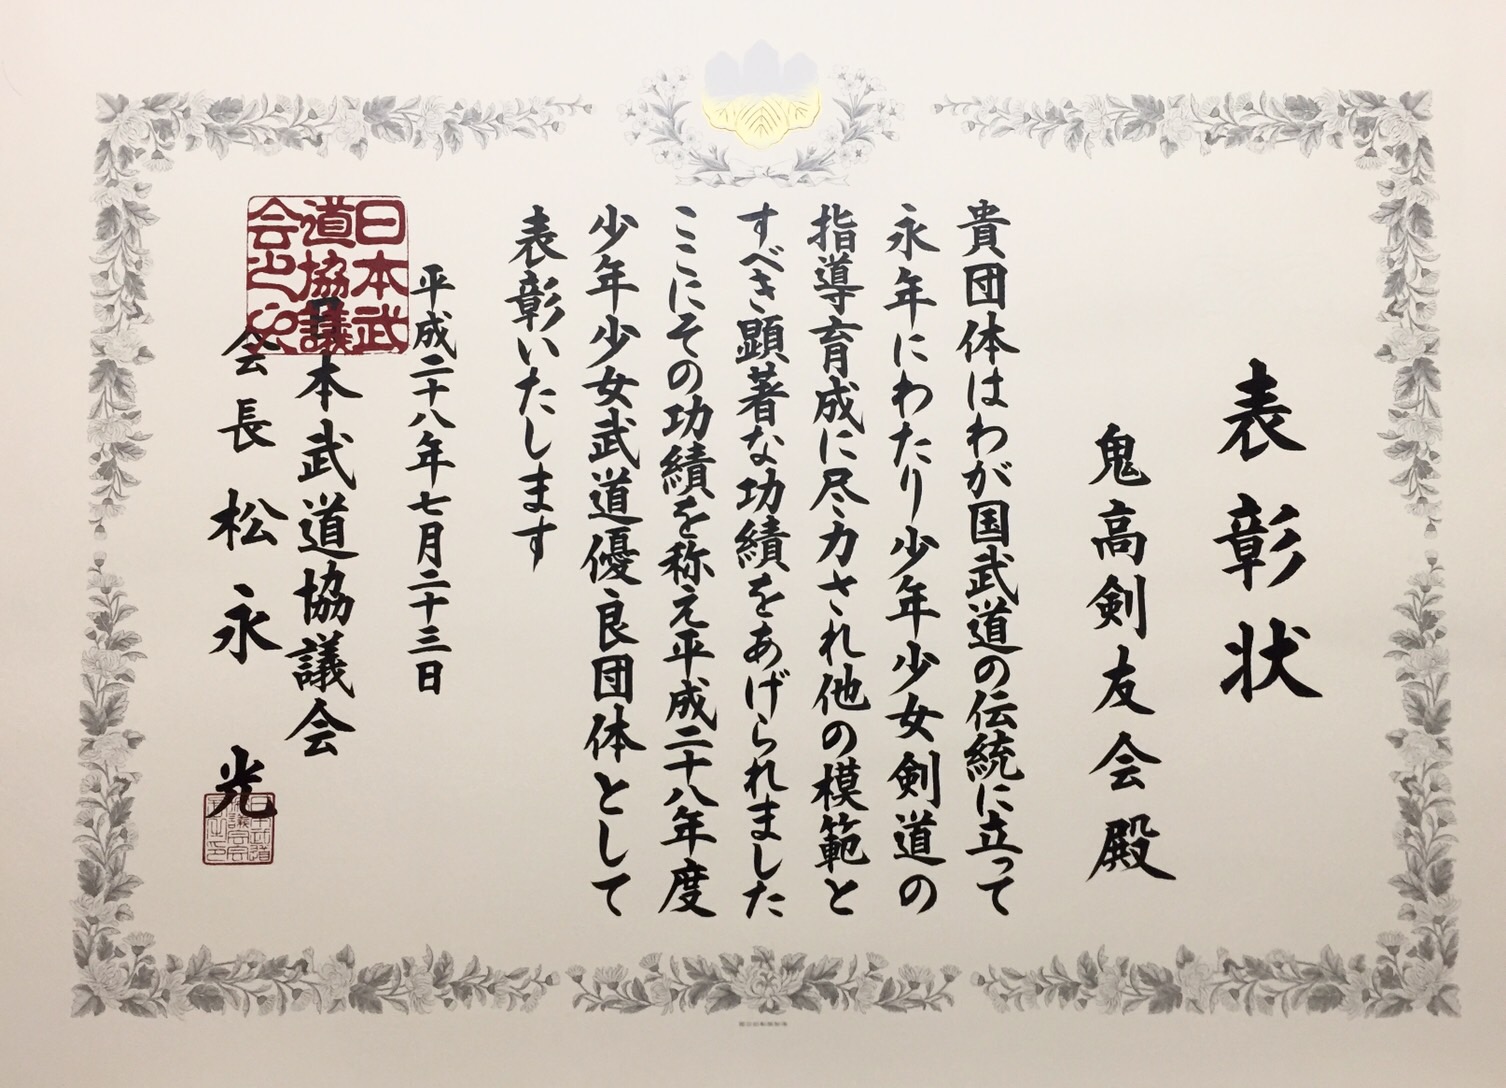 表彰状
鬼高剣友会殿
貴団体はわが国武道の伝統に立って
永年にわたり少年少女剣道の
指導育成に尽力され他の模範と
すべき顕著な功績をあげられました
ここにその功績を称え平成二十八年度
少年少女武道優良団体として
表彰いたします
平成二十八年七月二十三日
日本武道協議会
会長 松永 光
日本武
道協議
会之印